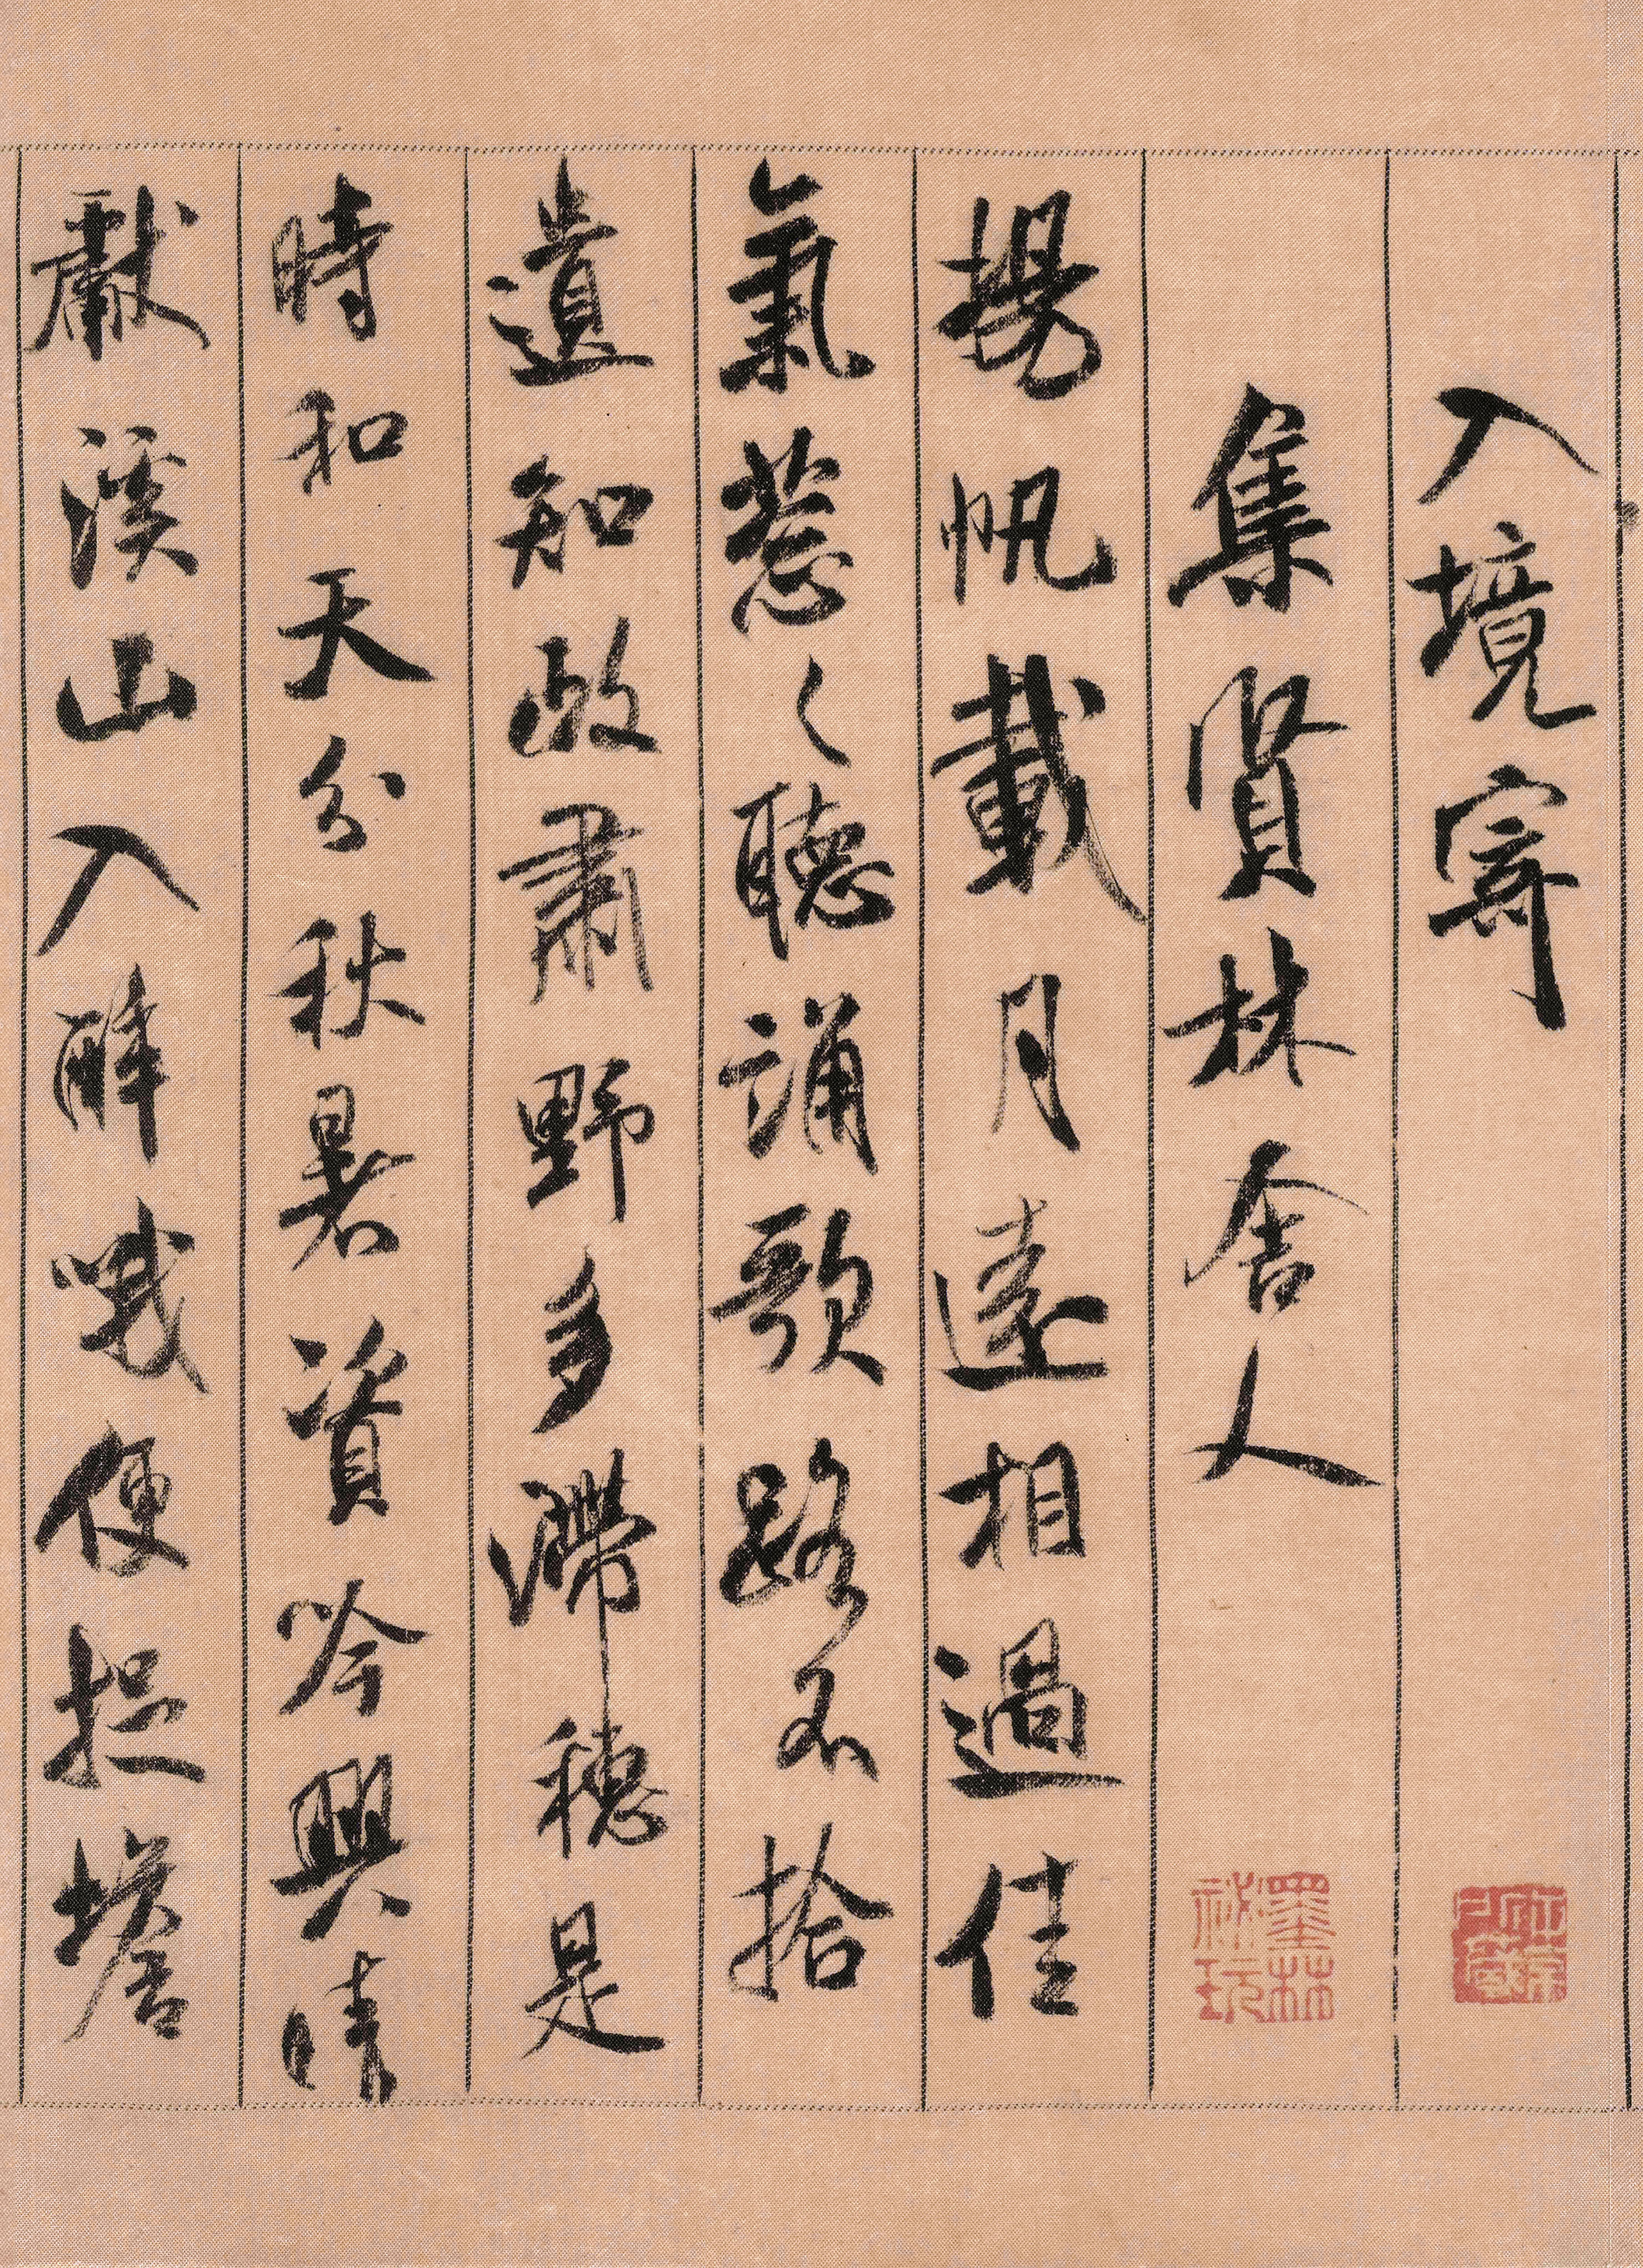 入境寄
集賢林舍人
揚帆載月遠相過佳
氣蔥〻聽誦歌路不拾
遺知政肅野多滯穗是
時和天分秋暑資吟興晴
獻溪山入醉哦便捉蟾
墨林
祕玩